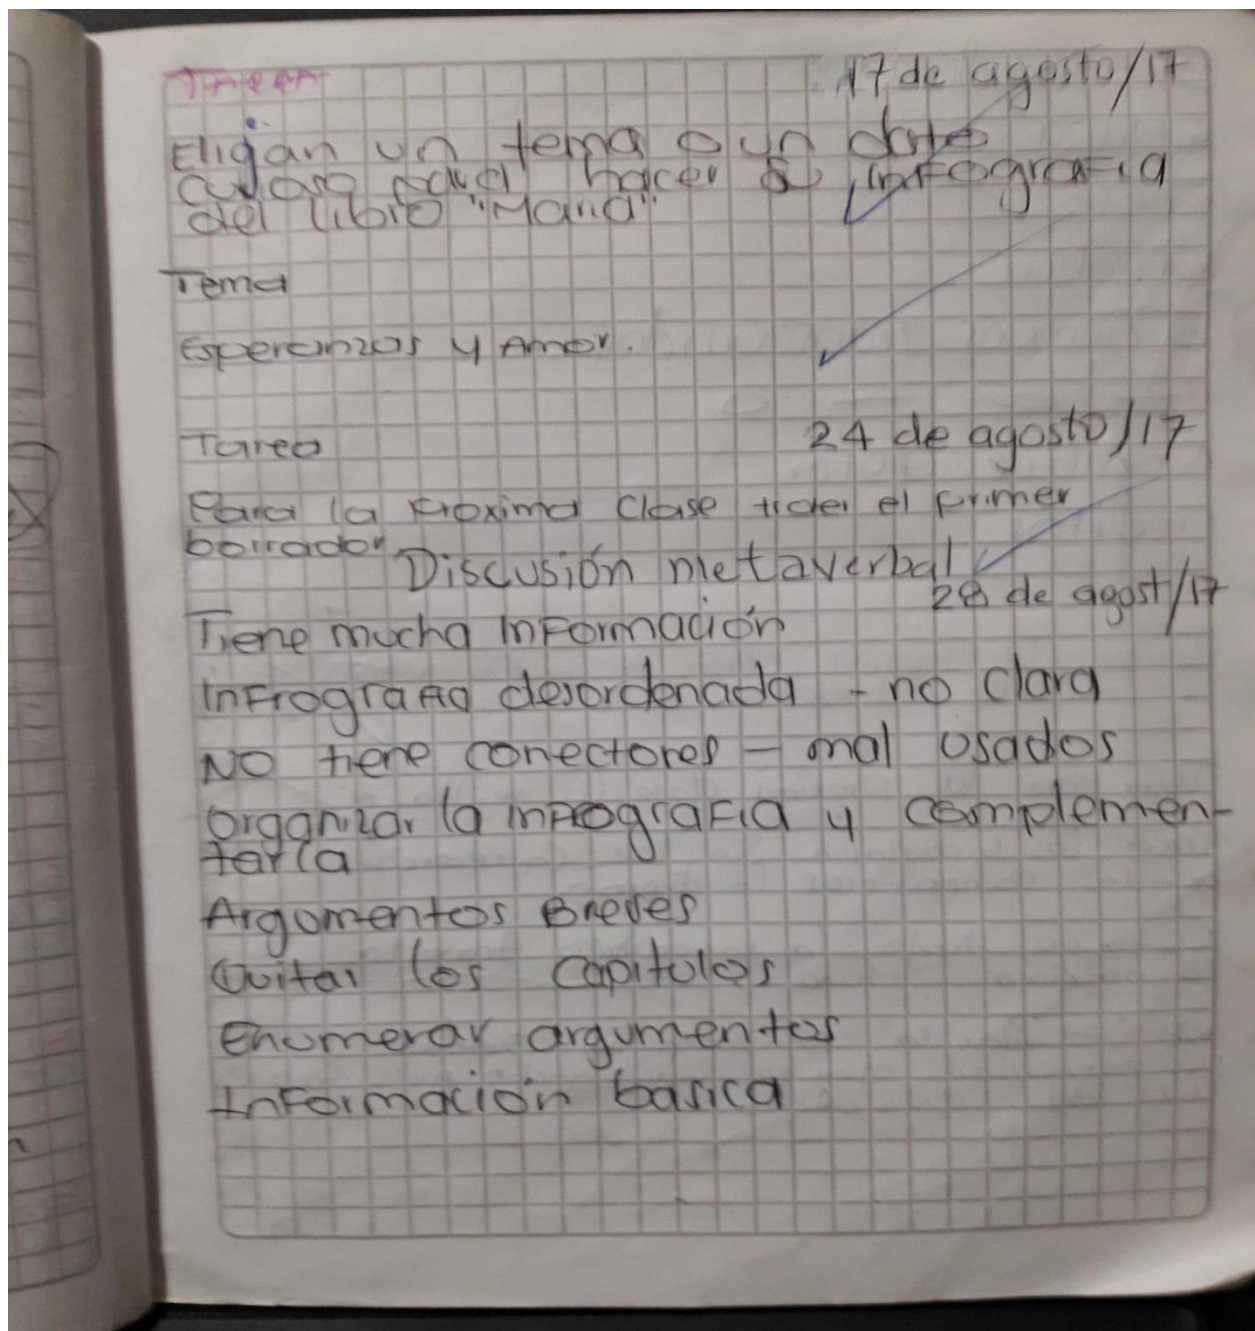 17 de agosto/17
Eligan un tema o un dato
curioso para hacer su infografia
del libro "María".
Tema
Esperanzas y Amor.
Tarea 24 de agosto/17
Para la proxima clase traer el primer
borrador
Discusión metaverbal
28 de agost/17
Tiene mucha información
Infrografia desordenada - no clara
NO tiene conectores - mal usados
Organizar la infografia y complemen-
tarla
Argumentos Breves
Quitar los capitulos
Enumerar argumentos
Información basica